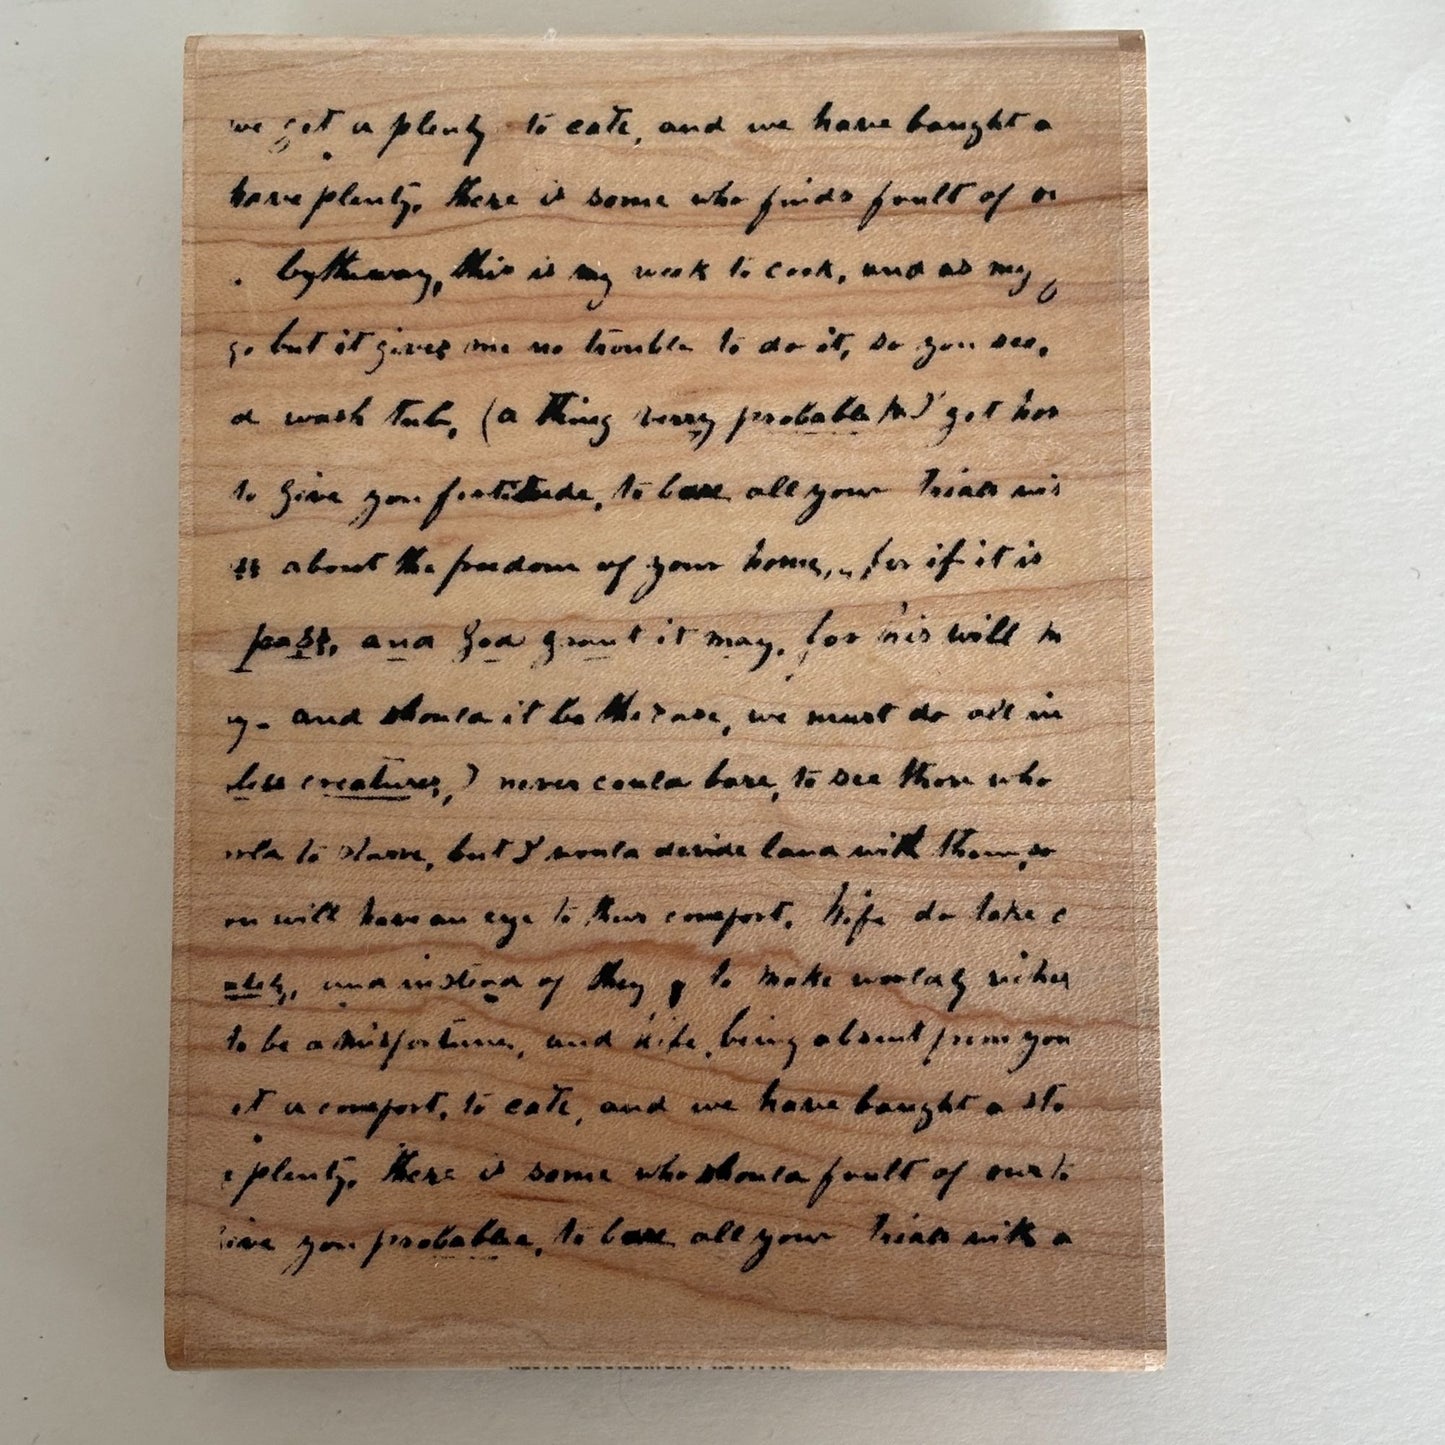 we get a plenty to eate, and we have baught a
have plenty, there is some who finds fault of
by the way, this is my week to cook, and as my
go but it gives me no trouble to do it, so you see,
wash tub, (a thing verry probable got
to give you fortitude, to bare all your trials
about the freedom of your home, for if it is
past, and God grant it may, for his will
and should it be the case, we must do all in
less creatures,) never could bare, to see those who
to starve, but I would devide land with them, so
will have an eye to their comfort. Wife do take
and instead of they to make worldly riches
to be a misfortune, and wife, being absent from you
a comfort, to eate, and we have baught a sto
plenty, there is some who should fault of our
give you probable, to bare all your trials with a